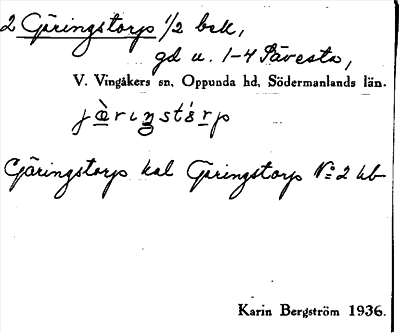 2 Göringstorp 1/2 bsk,
gd u. 1-4 Sävesta,
V. Vingåkers sn, Oppunda hd, Södermanlands län.
Göringstorp kal Göringstorp No 2 kb
Karin Bergström 1936.